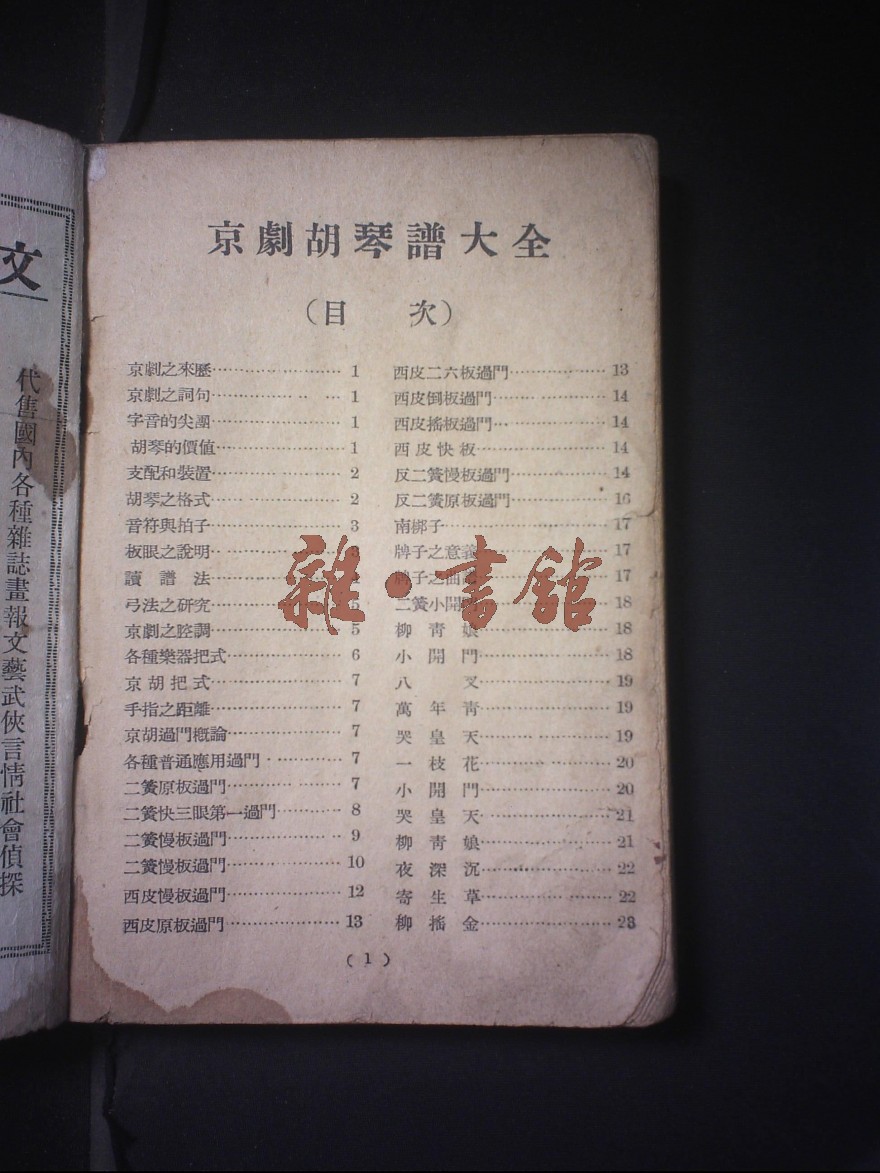 文
代售國內各種雜誌畫報文藝武俠言情社會偵探
京劇胡琴譜大全
（目　次）
京劇之來歷 1
京劇之詞句 1
字音的尖團 1
胡琴的價值 1
支配和裝置 2
胡琴之格式 2
音符與拍子 3
板眼之說明
讀譜法
弓法之研究 5
京劇之腔調 5
各種樂器把式 6
京胡把式 7
手指之距離 7
京胡過門概論 7
各種普通應用過門 7
二簧原板過門 7
二簧快三眼第一過門 8
二簧慢板過門 9
二簧慢板過門 10
西皮慢板過門 12
西皮原板過門 13
西皮二六板過門 13
西皮倒板過門 14
西皮搖板過門 14
西皮快板 14
反二簧慢板過門 14
反二簧原板過門 16
南梆子 17
牌子之意義 17
牌子之 17
二簧小開 18
柳青娘 18
小開門 18
八叉 19
萬年青 19
哭皇天 19
一枝花 20
小開門 20
哭皇天 21
柳青娘 21
夜深沉 22
寄生草 22
柳搖金 23
（1）
雜·書館